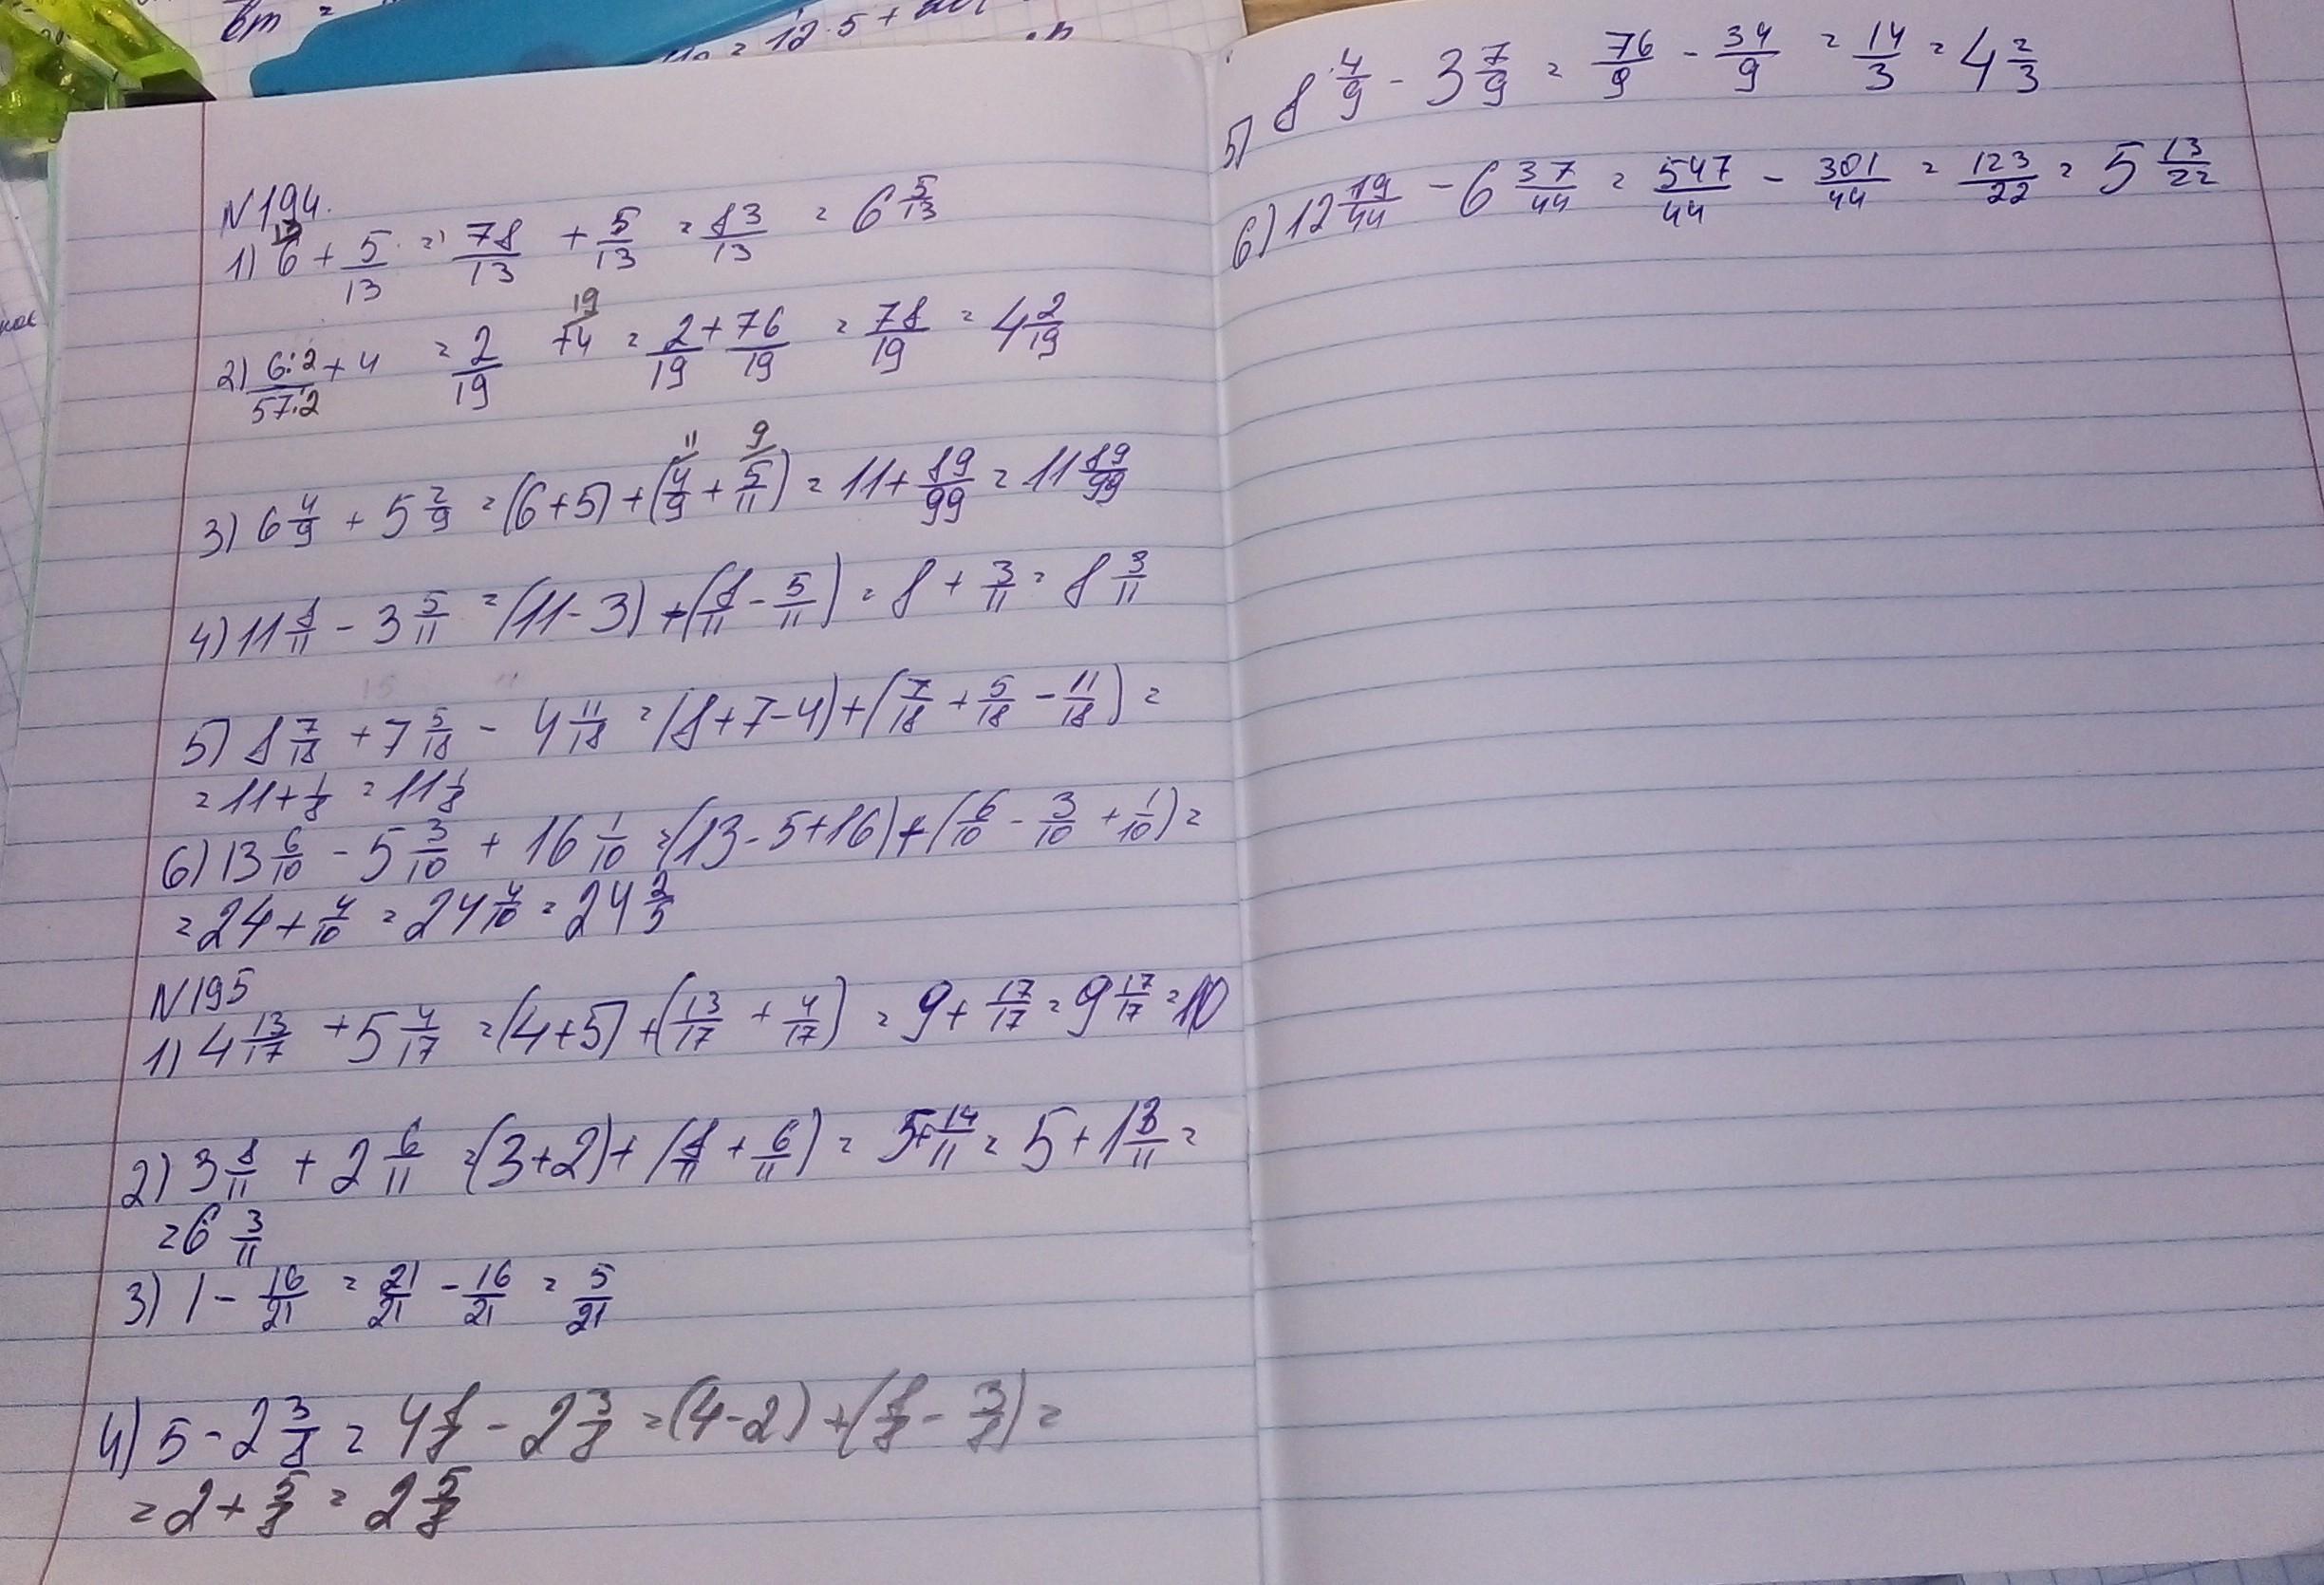 bm =
= 12·5 +
N194.
1) 6 + 5/13 = 78/13 + 5/13 = 83/13 = 6 5/13
2) 6:2/57:2 + 4 = 2/19 + 4 = 2/19 + 76/19 = 78/19 = 4 2/19
3) 6 4/9 + 5 2/9 = (6+5) + (4/9 + 5/11) = 11 + 89/99 = 11 89/99
4) 11 8/11 - 3 5/11 = (11-3) + (8/11 - 5/11) = 8 + 3/11 = 8 3/11
5) 8 7/18 + 7 5/18 - 4 11/18 = (8+7-4) + (7/18 + 5/18 - 11/18) =
= 11 + 1/8 = 11 1/8
6) 13 6/10 - 5 3/10 + 16 1/10 = (13-5+16) + (6/10 - 3/10 + 1/10) =
= 24 + 4/10 = 24 4/10 = 24 2/5
N195
1) 4 13/17 + 5 4/17 = (4+5) + (13/17 + 4/17) = 9 + 17/17 = 9 17/17 = 10
2) 3 8/11 + 2 6/11 = (3+2) + (8/11 + 6/11) = 5 + 14/11 = 5 + 1 3/11 =
= 6 3/11
3) 1 - 16/21 = 21/21 - 16/21 = 5/21
4) 5 - 2 3/8 = 4 8/8 - 2 3/8 = (4-2) + (8/8 - 3/8) =
= 2 + 5/8 = 2 5/8
5) 8 4/9 - 3 7/9 = 76/9 - 34/9 = 14/3 = 4 2/3
6) 12 19/44 - 6 37/44 = 547/44 - 301/44 = 123/22 = 5 13/22